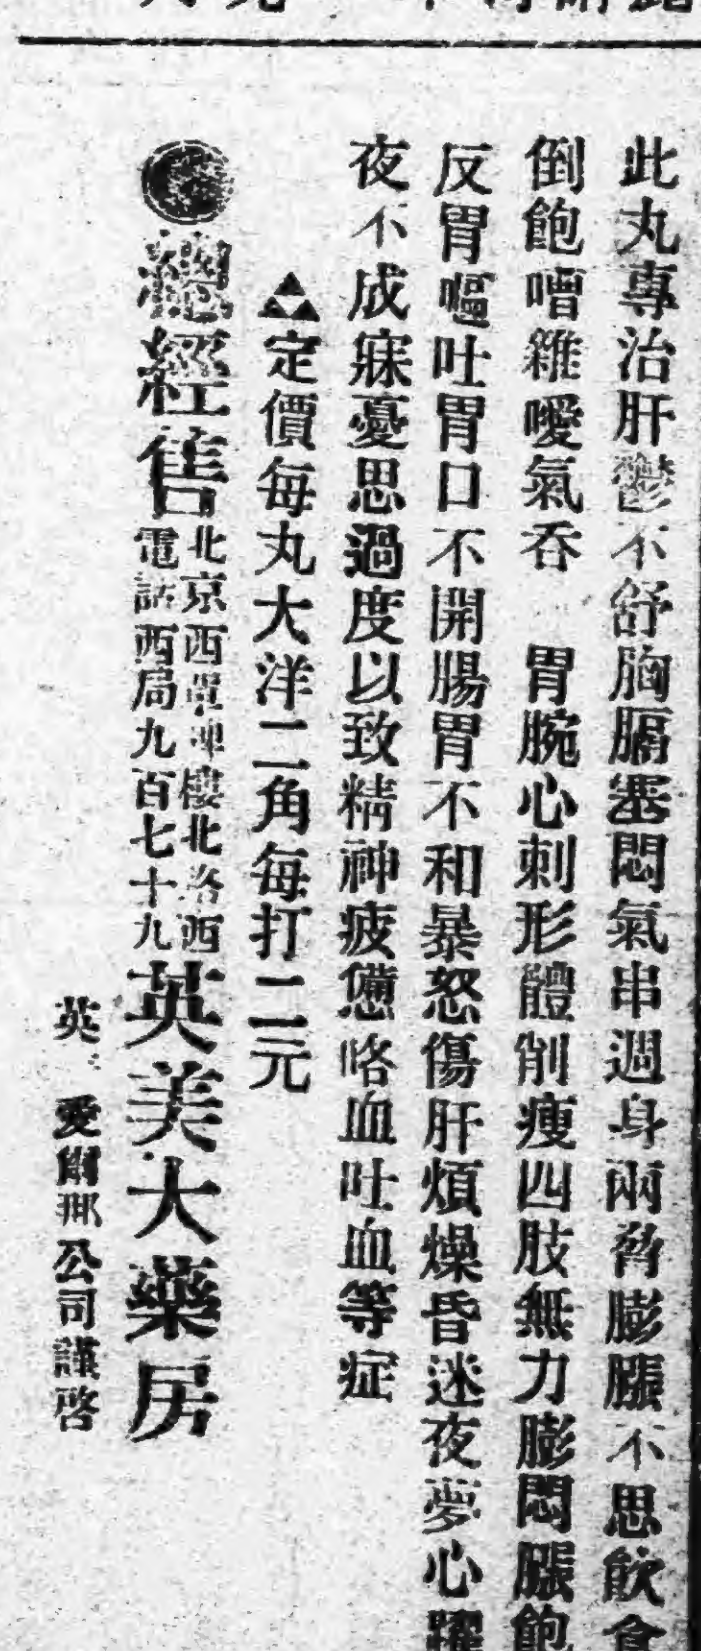 此丸專治肝鬱不舒胸膈塞悶氣串週身兩脅膨脹不思飲食
倒飽嘈雜噯氣吞 胃腕心刺形體削瘦四肢無力膨悶脹飽
反胃嘔吐胃口不開腸胃不和暴怒傷肝煩燥昏迷夜夢心躍
夜不成寐憂思過度以致精神疲憊咯血吐血等症
▲定價每丸大洋二角每打二元
總經售
北京西單牌樓北路西
電話西局九百七十九
英美大藥房
英 愛爾那公司謹啓